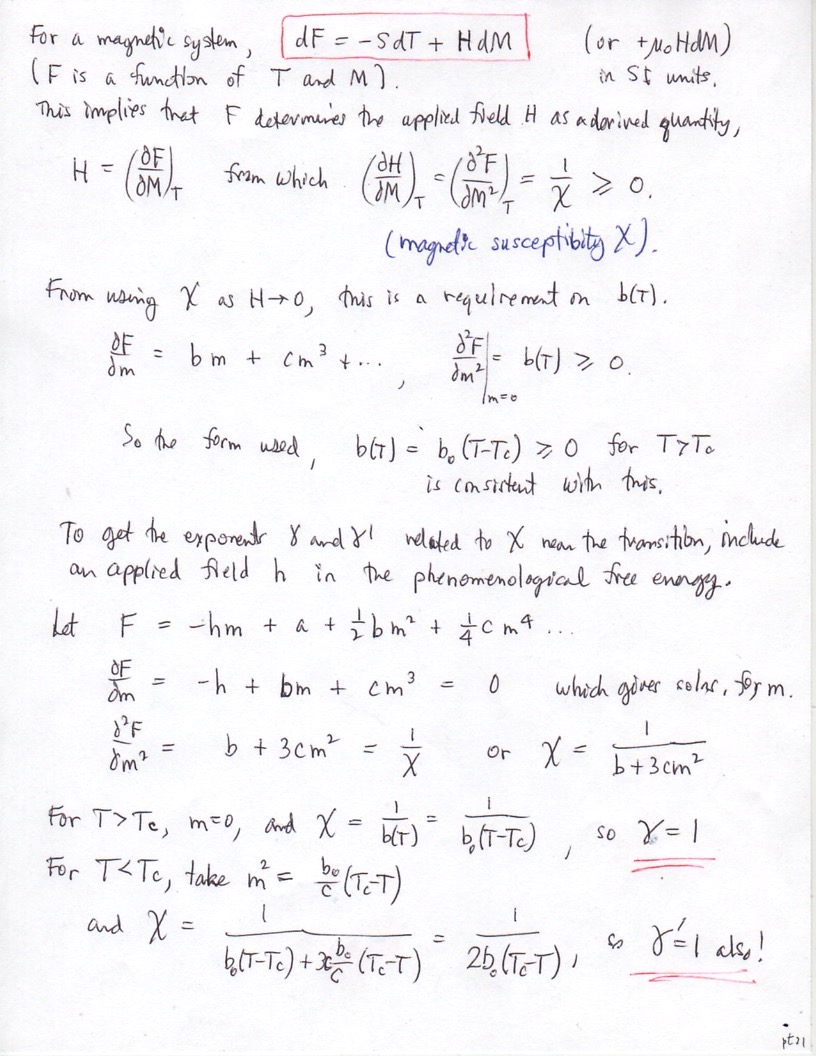 For a magnetic system, dF = -SdT + HdM (or +μ₀HdM)
(F is a function of T and M). in SI units.
This implies that F determines the applied field H as a derived quantity,
H = (∂F/∂M)_T from which (∂H/∂M)_T = (∂²F/∂M²)_T = 1/χ ≥ 0.
(magnetic susceptibity χ).
From using χ as H→0, this is a requirement on b(T).
∂F/∂m = bm + cm³ + ..., ∂²F/∂m²|_{m=0} = b(T) ≥ 0.
So the form used, b(T) = b₀(T-Tc) ≥ 0 for T>Tc
is consistent with this.
To get the exponents γ and γ' related to χ near the transition, include
an applied field h in the phenomenological free energy.
Let F = -hm + a + ½bm² + ¼cm⁴ ...
∂F/∂m = -h + bm + cm³ = 0 which gives solns. for m.
∂²F/∂m² = b + 3cm² = 1/χ or χ = 1/(b+3cm²)
For T>Tc, m=0, and χ = 1/b(T) = 1/(b₀(T-Tc)), so γ=1
For T<Tc, take m² = b₀/c (Tc-T)
and χ = 1/(b₀(T-Tc)+3c b₀/c (Tc-T)) = 1/(2b₀(Tc-T)), so γ'=1 also!
pt21